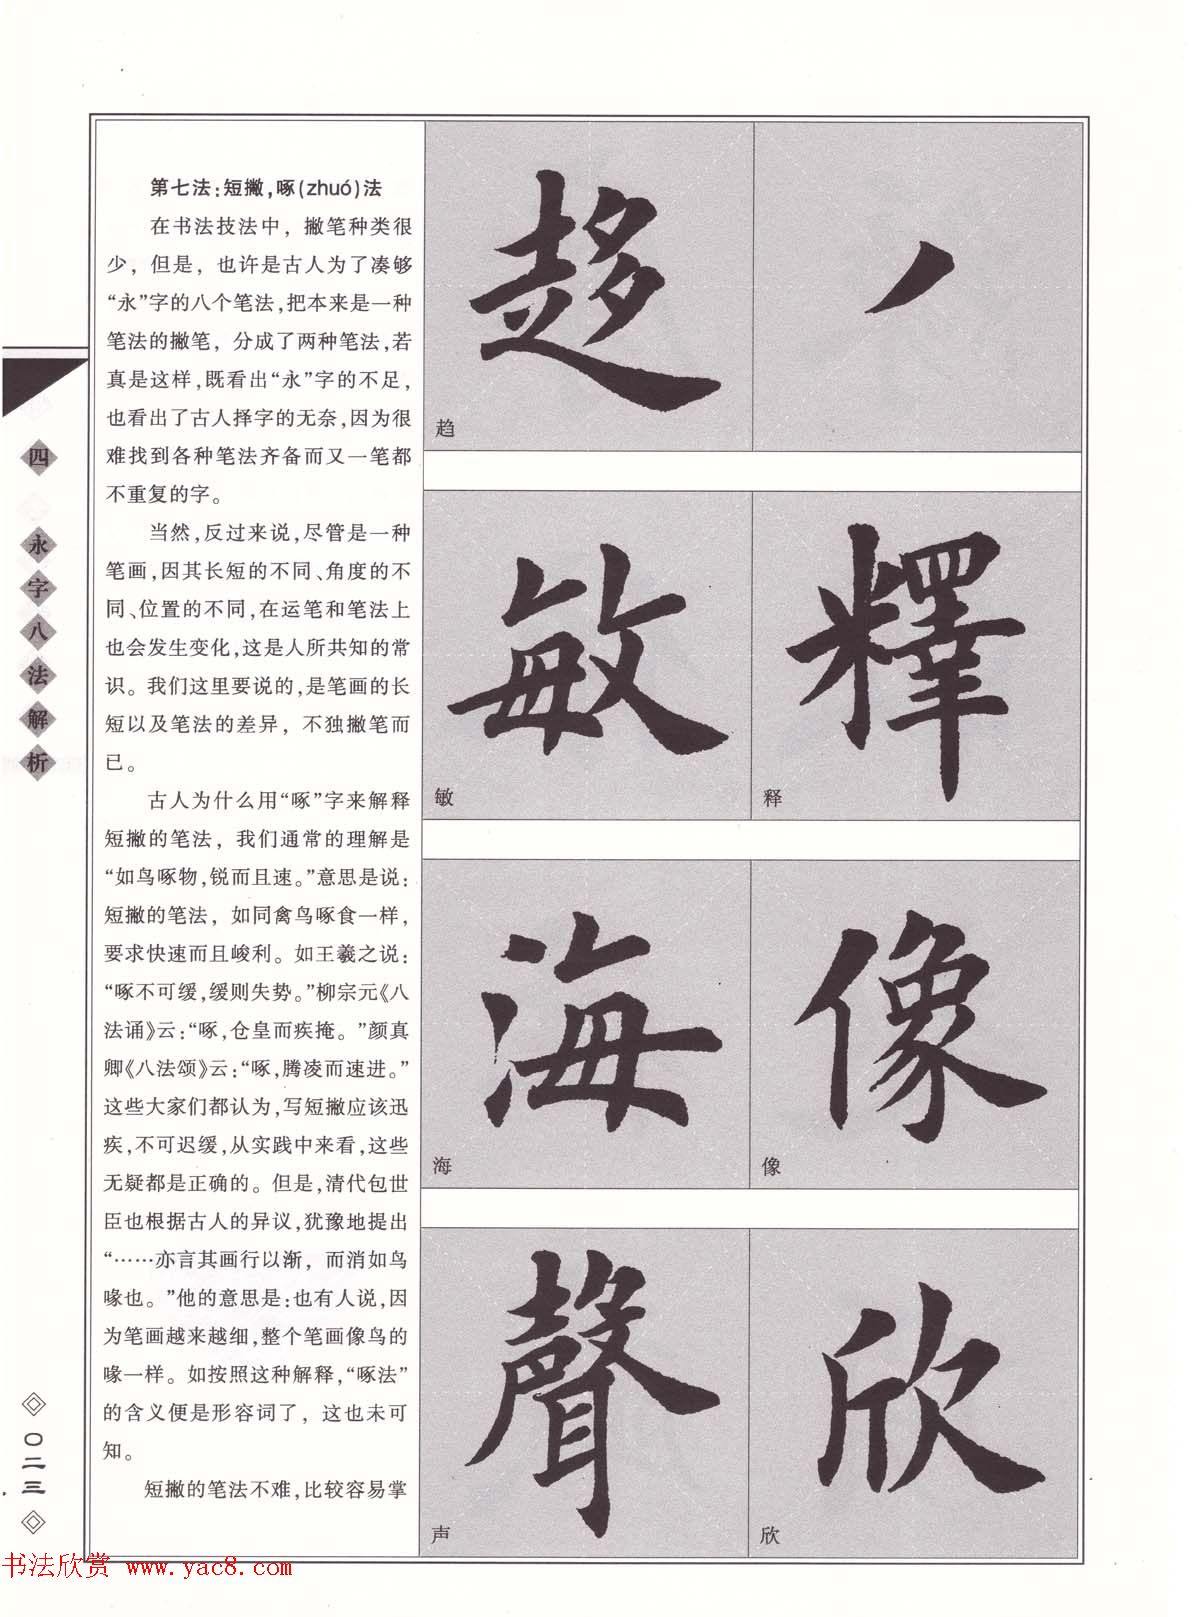 第七法:短撇,啄(zhuó)法
在书法技法中，撇笔种类很
少，但是，也许是古人为了凑够
“永”字的八个笔法,把本来是一种
笔法的撇笔，分成了两种笔法,若
真是这样,既看出“永”字的不足,
也看出了古人择字的无奈,因为很
难找到各种笔法齐备而又一笔都
不重复的字。
当然,反过来说,尽管是一种
笔画,因其长短的不同、角度的不
同、位置的不同,在运笔和笔法上
也会发生变化,这是人所共知的常
识。我们这里要说的,是笔画的长
短以及笔法的差异，不独撇笔而
已。
古人为什么用“啄”字来解释
短撇的笔法，我们通常的理解是
“如鸟啄物,锐而且速。”意思是说:
短撇的笔法，如同禽鸟啄食一样,
要求快速而且峻利。如王羲之说:
“啄不可缓,缓则失势。”柳宗元《八
法诵》云:“啄,仓皇而疾掩。”颜真
卿《八法颂》云:“啄,腾凌而速进。”
这些大家们都认为,写短撇应该迅
疾,不可迟缓,从实践中来看,这些
无疑都是正确的。但是,清代包世
臣也根据古人的异议,犹豫地提出
“……亦言其画行以渐，而消如鸟
喙也。”他的意思是:也有人说,因
为笔画越来越细,整个笔画像鸟的
喙一样。如按照这种解释,“啄法”
的含义便是形容词了，这也未可
知。
短撇的笔法不难,比较容易掌
趍
趋
敏
敏
釋
释
海
海
像
像
聲
声
欣
欣
四 永字八法解析
〇二三
书法欣赏 www.yac8.com